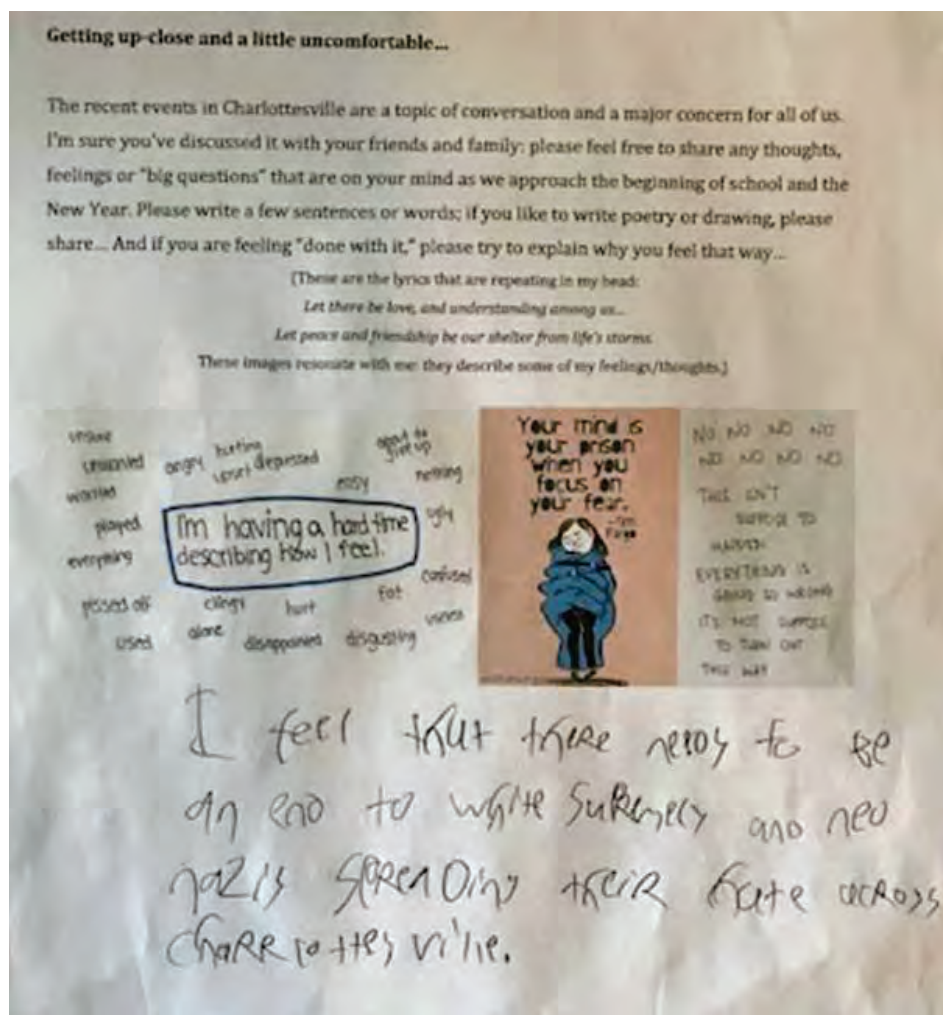 Getting up-close and a little uncomfortable...
The recent events in Charlottesville are a topic of conversation and a major concern for all of us.
I'm sure you've discussed it with your friends and family; please feel free to share any thoughts,
feelings or "big questions" that are on your mind as we approach the beginning of school and the
New Year. Please write a few sentences or words; if you like to write poetry or drawing, please
share... And if you are feeling "done with it," please try to explain why you feel that way...
(These are the lyrics that are repeating in my head:
Let there be love, and understanding among us...
Let peace and friendship be our shelter from life's storms.
These images resonate with me: they describe some of my feelings/thoughts.)
unsure
unwanted
worried
played
everything
pissed off
used
angry
hurting
upset
depressed
easy
about to
give up
nothing
ugly
I'm having a hard time
describing how I feel.
confused
fat
useless
clingy
hurt
alone
disappointed
disgusting
Your mind is
your prison
when you
focus on
your fear.
NO NO NO NO
NO NO NO NO
THIS ISN'T
SUPPOSE TO
HAPPEN
EVERYTHING IS
GOING SO WRONG
IT'S NOT SUPPOSE
TO TURN OUT
THIS WAY
I feel that there needs to be
an end to white Supremecy and neo
nazis spreading their hate across
Charrlottesville.